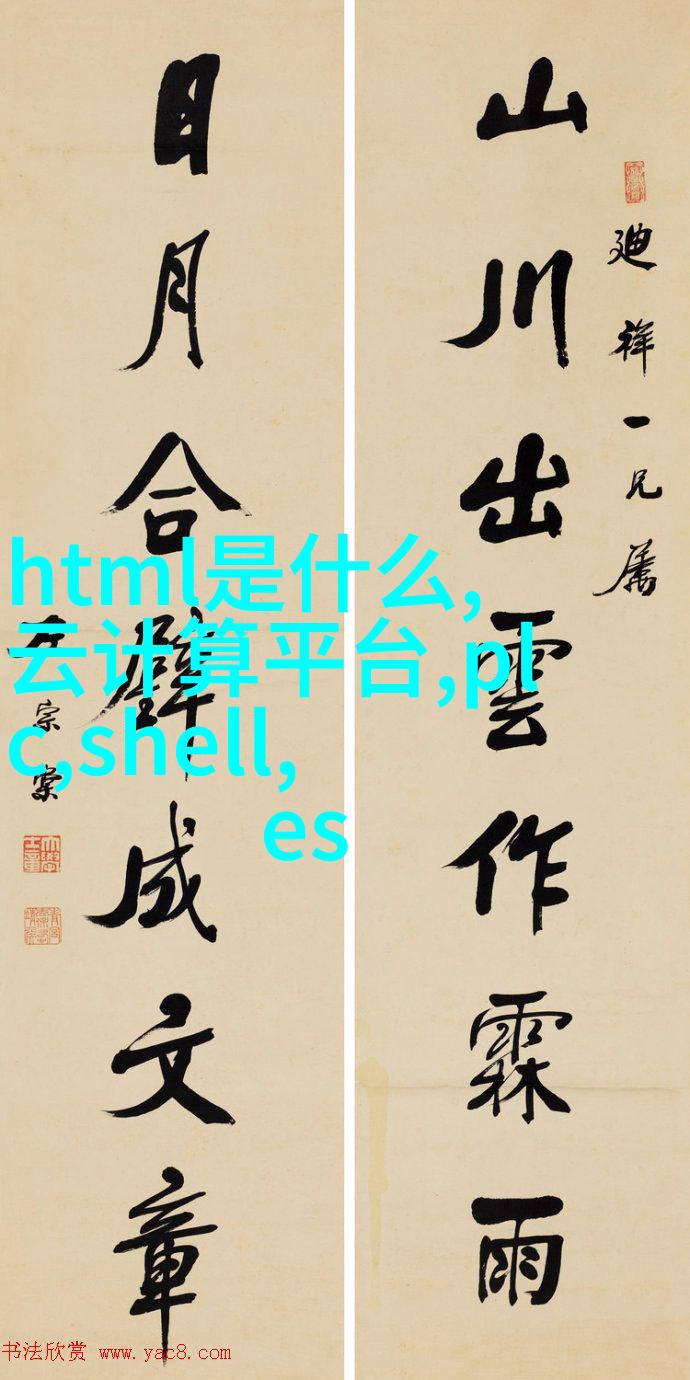 山川出雲作霖雨
廸祥一兄屬
日月合璧成文章
宗棠
html是什么,
云计算平台,pl
c,shell,
es
书法欣赏 www.yac8.com